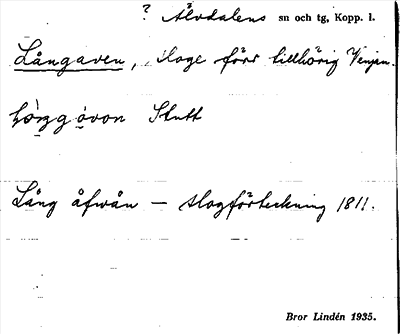 ? Älvdalens sn och tg, Kopp. l.
Långaven, slage förr tillhörig Venjan.
Stutt
Lång åfwån — slogförteckning 1811.
Bror Lindén 1935.